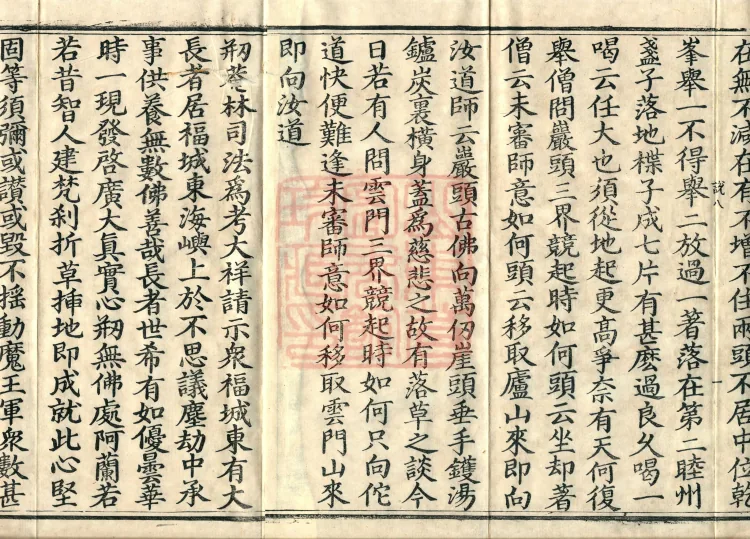 在無不減在有不增不住兩頭不居中住乾
峯舉一不得舉二放過一著落在第二睦州
盞子落地楪子成七片有甚麽過良久喝一
喝云任大也須從地起更高爭奈有天何復
舉僧問巖頭三界競起時如何頭云坐却著
僧云未審師意如何頭云移取廬山來即向
汝道師云巖頭古佛向萬仭崖頭垂手鑊湯
鑪炭裏橫身蓋爲慈悲之故有落草之談今
日若有人問雲門三界競起時如何只向佗
道快便難逢未審師意如何移取雲門山來
即向汝道
剏菴林司法爲考大祥請示衆福城東有大
長者居福城東海嶼上於不思議塵劫中承
事供養無數佛善哉長者世希有如優曇華
時一現發啓廣大真實心剏無佛處阿蘭若
若昔智人建梵刹折草挿地即成就此心堅
固等須彌或讃或毀不揺動魔王軍衆數甚
説八
一